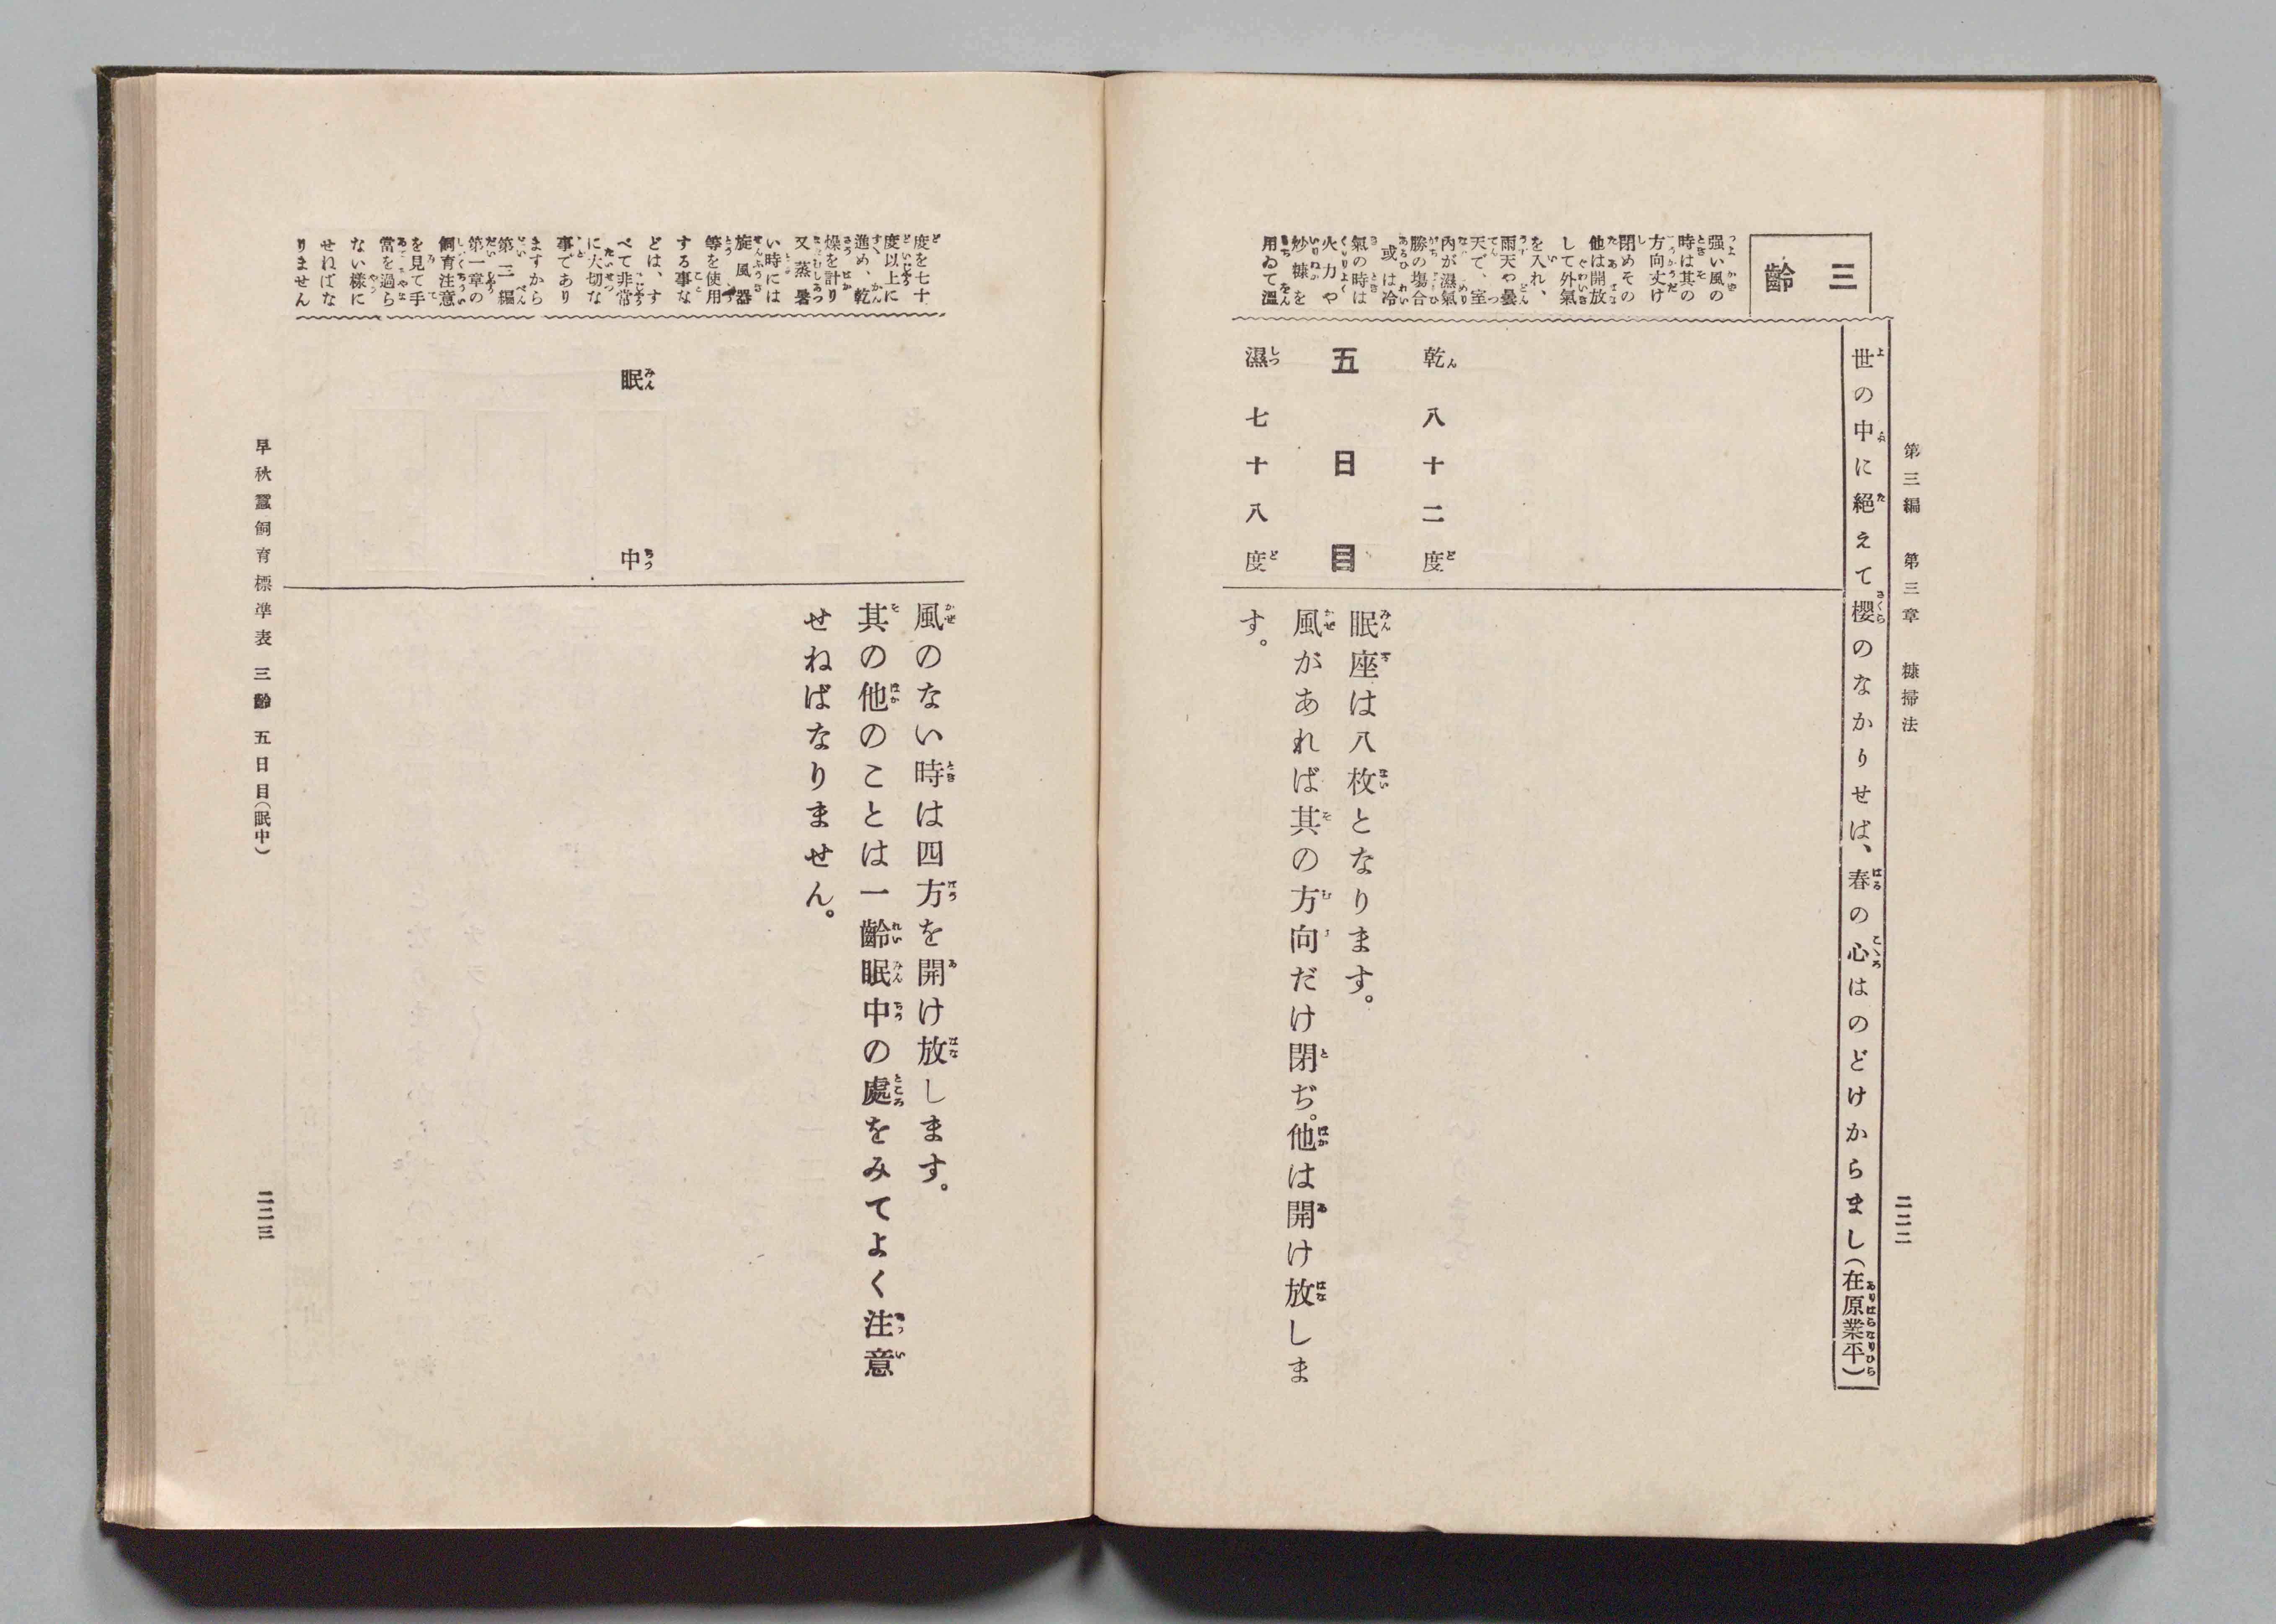 第三編　第三章　糠掃法
二二二
世の中に絕えて櫻のなかりせば、春の心はのどけからまし（在原業平）
三齡
强い風の
時は其の
方向丈け
閉めその
他は開放
して外氣
を入れ、
雨天や曇
天で、室
內が濕氣
勝の塲合
或は冷
氣の時は
火力や
炒糠を
用ゐて溫
乾　八十二度
五日目
濕　七十八度
眠座は八枚となります。
風があれば其の方向だけ閉ぢ。他は開け放しま
す。
度を七十
度以上に
進め、乾
燥を計り
又蒸暑
い時には
旋風器
等を使用
する事な
どは、す
べて非常
に大切な
事であり
ますから
第二編
第一章の
飼育注意
を見て手
當を過ら
ない樣に
せねばな
りません
眠中
風のない時は四方を開け放します。
其の他のことは一齡眠中の處をみてよく注意
せねばなりません。
早秋蠶飼育標準表　三齡　五日目（眠中）
二二三